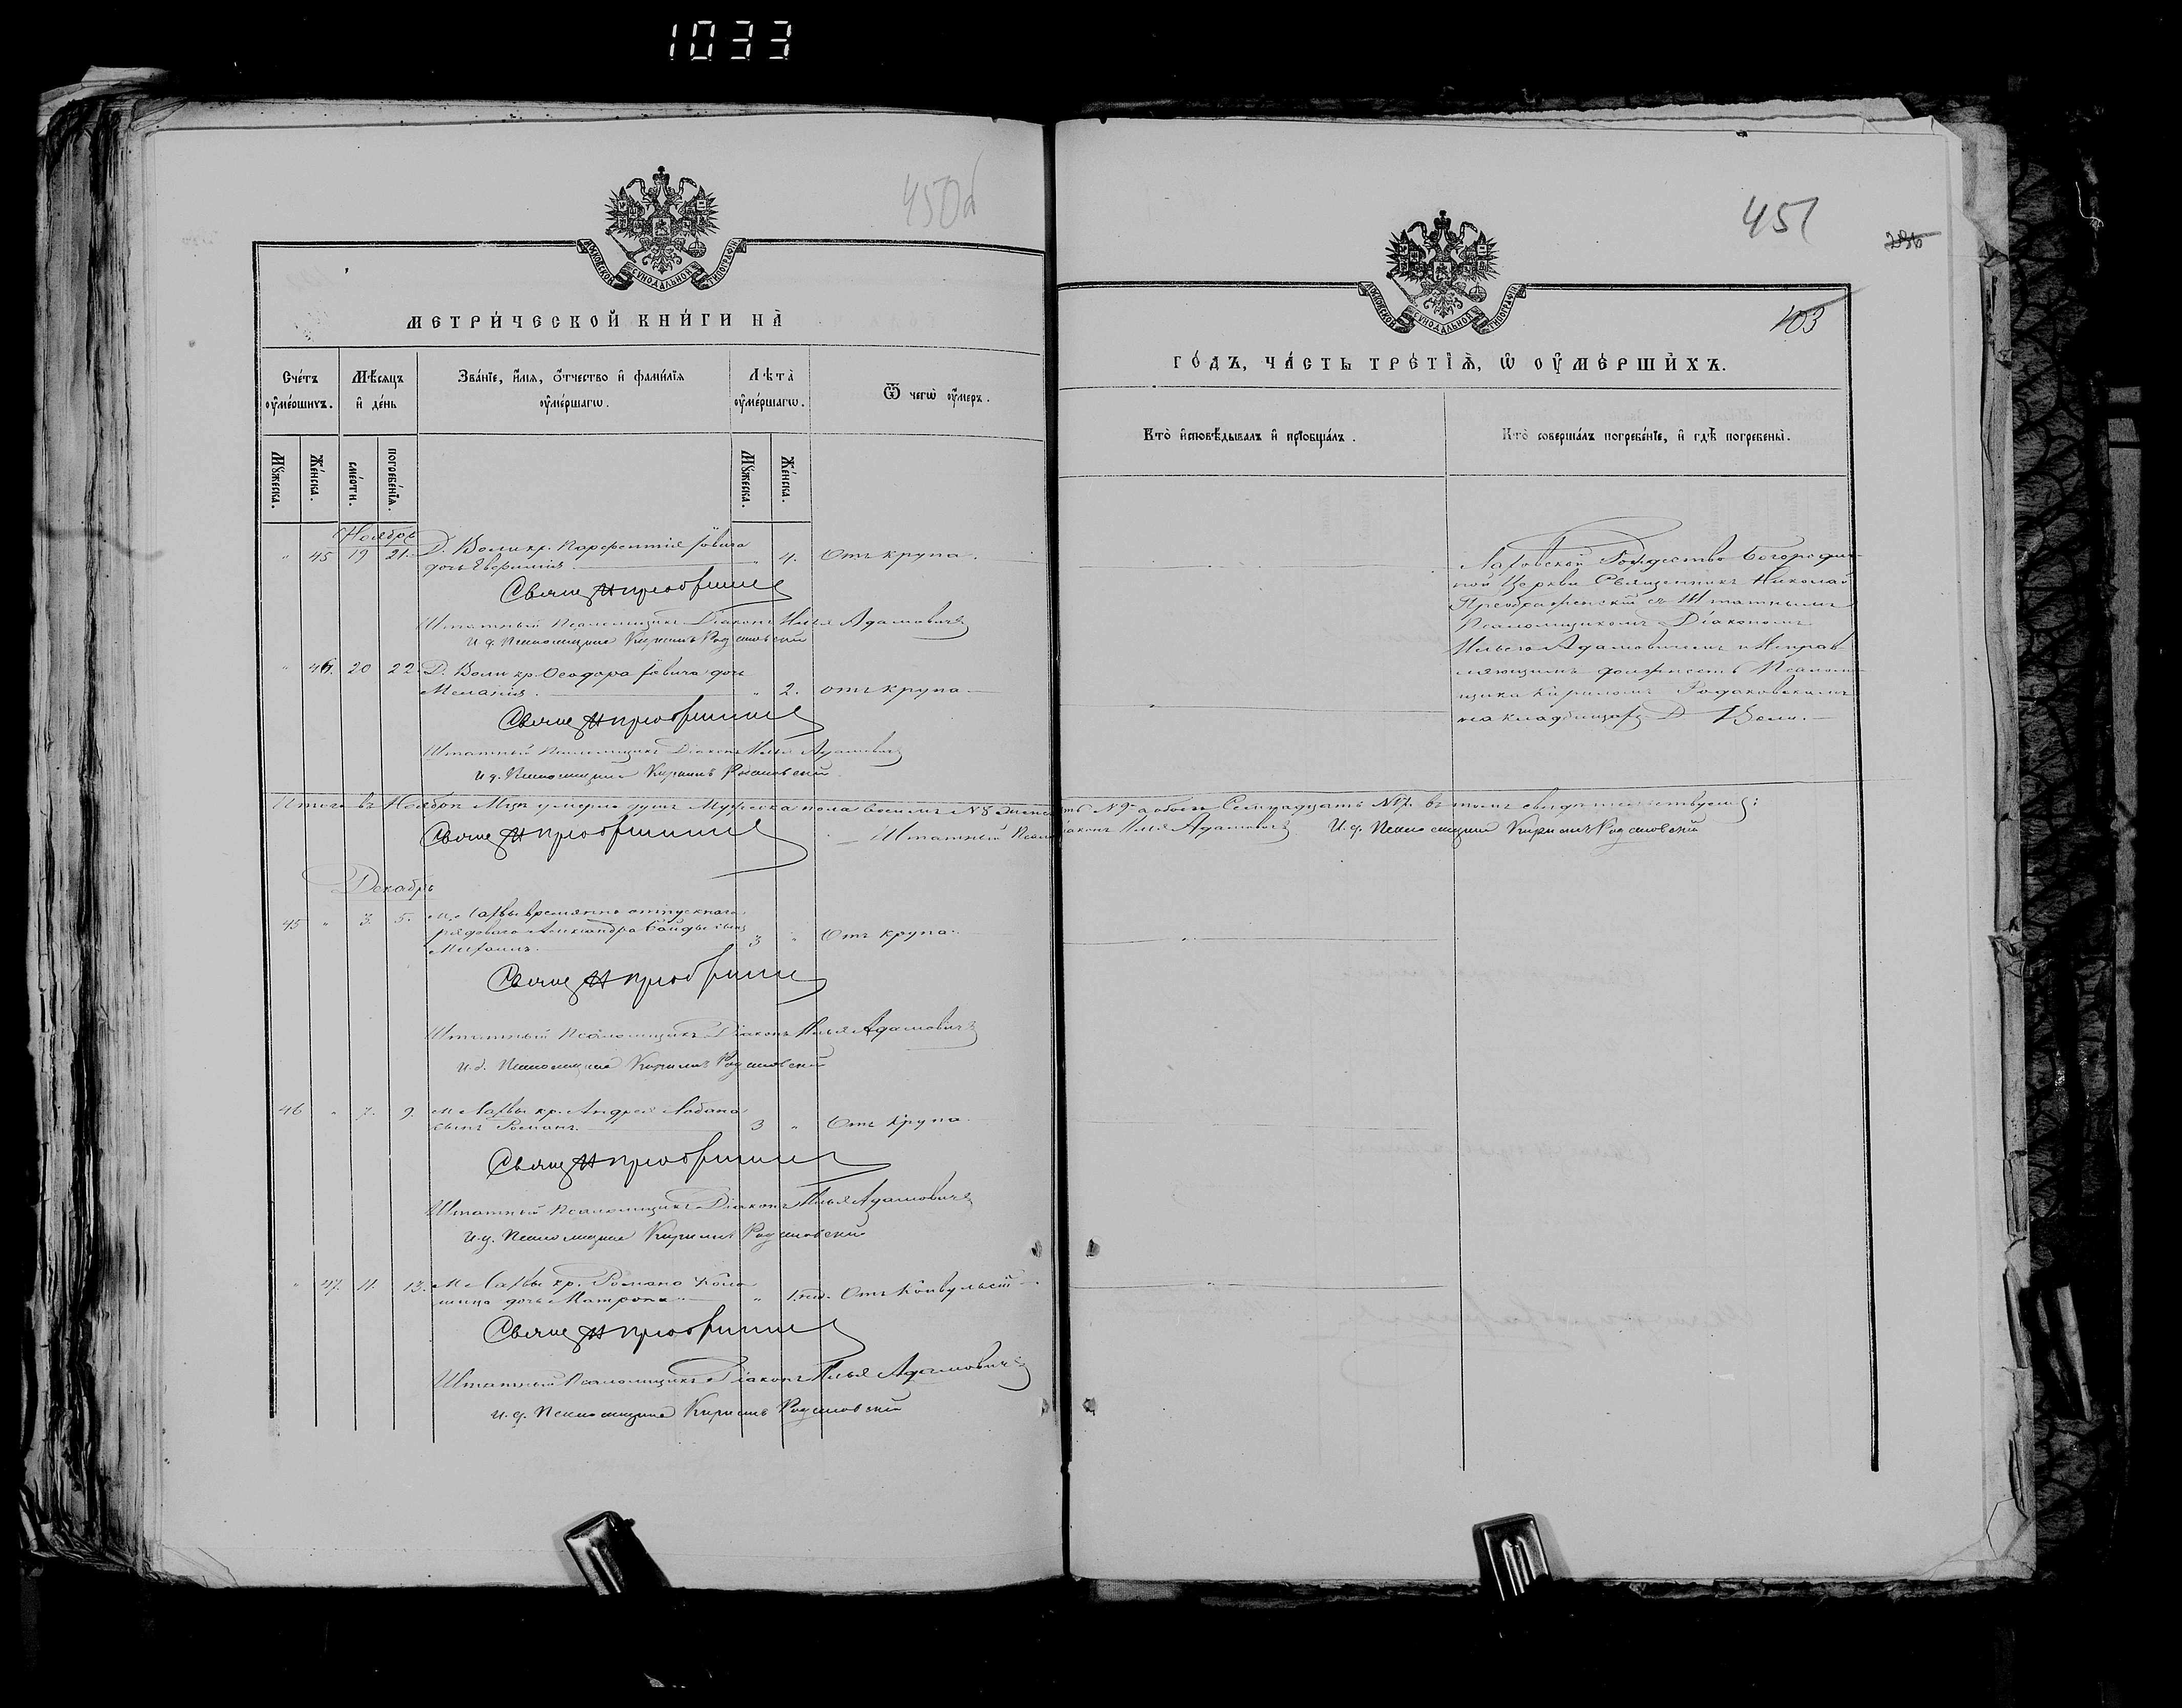 1033
450б
МОСКОВСКОЙ СѴНОДАЛЬНОЙ ТИПОГРАФІИ
МЕТРИ́ЧЕСКОЙ КНИ́ГИ НА̀
Сче́тъ ᲂу҆ме́ршихъ.
Мѣ́сяцъ и҆ де́нь
Зва́нїе, и҆́мѧ, ѻ҆́тчество и҆ фами́лїѧ ᲂу҆ме́ршагѡ.
Лѣ́та ᲂу҆ме́ршагѡ.
Ѿ чегѡ̀ ᲂу҆́меръ.
Мꙋ́жеска.
Же́нска.
сме́рти.
погребе́нїѧ.
Мꙋ́жеска.
Же́нска.
Ноябрь
" 45 19 21. Д. Воли кр. Парфентія
дочь " 4. Отъ крупа.
Священ Н Преображенскій
Штатный Псаломщикъ Діаконъ Илья Адамовичъ
И. д. Псаломщика Кирилъ
" 46. 20 22. Д. Воли кр. Ѳеодора дочь
Меланія. " 2. отъ крупа
Священ Н Преображенскій
Штатный Псаломщикъ Діаконъ Илья Адамовичъ
И. д. Псаломщика Кирилъ
Итого въ Ноябрѣ Мцѣ умерло душъ Мужеска пола восемь N 8 N 9 а обоего Семнадцать N 17. въ томъ свидѣтельствуемъ:
Священ Н Преображенскій Штатный Діаконъ Илья Адамовичъ И. д. Псаломщика Кирилъ
Декабрь
45 " 3. 5. М. временно отпускнаго
рядоваго Александра сынъ
Михаилъ. 3 " Отъ крупа.
Священ Н Преображенскій
Штатный Псаломщикъ Діаконъ Илья Адамовичъ
И. д. Псаломщика Кирилъ
46 " 7. 9. М. кр. Андрея Лобана
сынъ Романъ. 3 " Отъ крупа.
Священ Н Преображенскій
Штатный Псаломщикъ Діаконъ Илья Адамовичъ
И. д. Псаломщика Кирилъ
" 47. 11. 13. М. кр. Романа
дочь Матрона. " Отъ Конвульсій
Священ Н Преображенскій
Штатный Псаломщикъ Діаконъ Илья Адамовичъ
И. д. Псаломщика Кирилъ
451
103
МОСКОВСКОЙ СѴНОДАЛЬНОЙ ТИПОГРАФІИ
ГО́ДЪ, ЧА́СТЬ ТРЕ́ТЇѦ, Ѡ҆ ОУ҆МЕ́РШИХЪ.
Кто̀ и҆сповѣ́дывалъ и҆ прїобща́лъ.
Кто̀ соверша́лъ погребе́нїе, и҆ гдѣ̀ погребены̀.
Рождество Богородич-
ной Церкви Священникъ Николай
Преображенскій съ Штатнымъ
Псаломщикомъ Діакономъ
Ильею Адамовичемъ и Исправ-
ляющимъ должность Псалом-
щика Кириломъ
на кладбищѣ Д Воли.